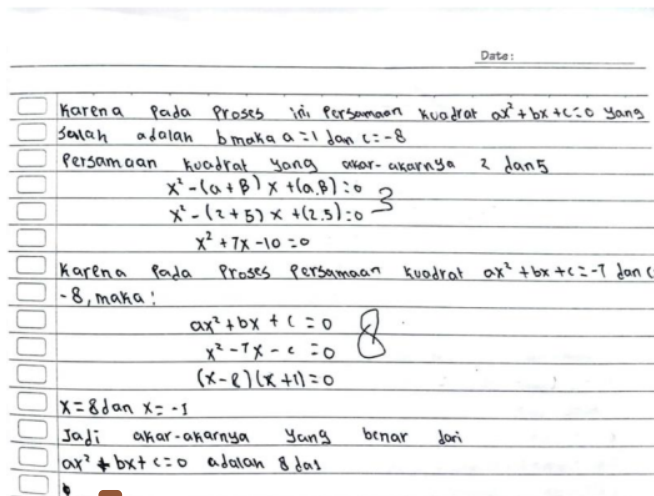 Date:
Karena pada proses ini persamaan kuadrat ax² + bx + c = 0 yang
salah adalah b maka a = 1 dan c = -8
Persamaan kuadrat yang akar-akarnya 2 dan 5
x² - (α + β) x + (α.β) = 0
3
x² - (2 + 5) x + (2.5) = 0
x² + 7x - 10 = 0
Karena pada proses persamaan kuadrat ax² + bx + c = -7 dan c
-8, maka :
ax² + bx + c = 0
8
x² - 7x - c = 0
(x - 8) (x + 1) = 0
x = 8 dan x = -1
Jadi akar-akarnya yang benar dari
ax² + bx + c = 0 adalah 8 da1